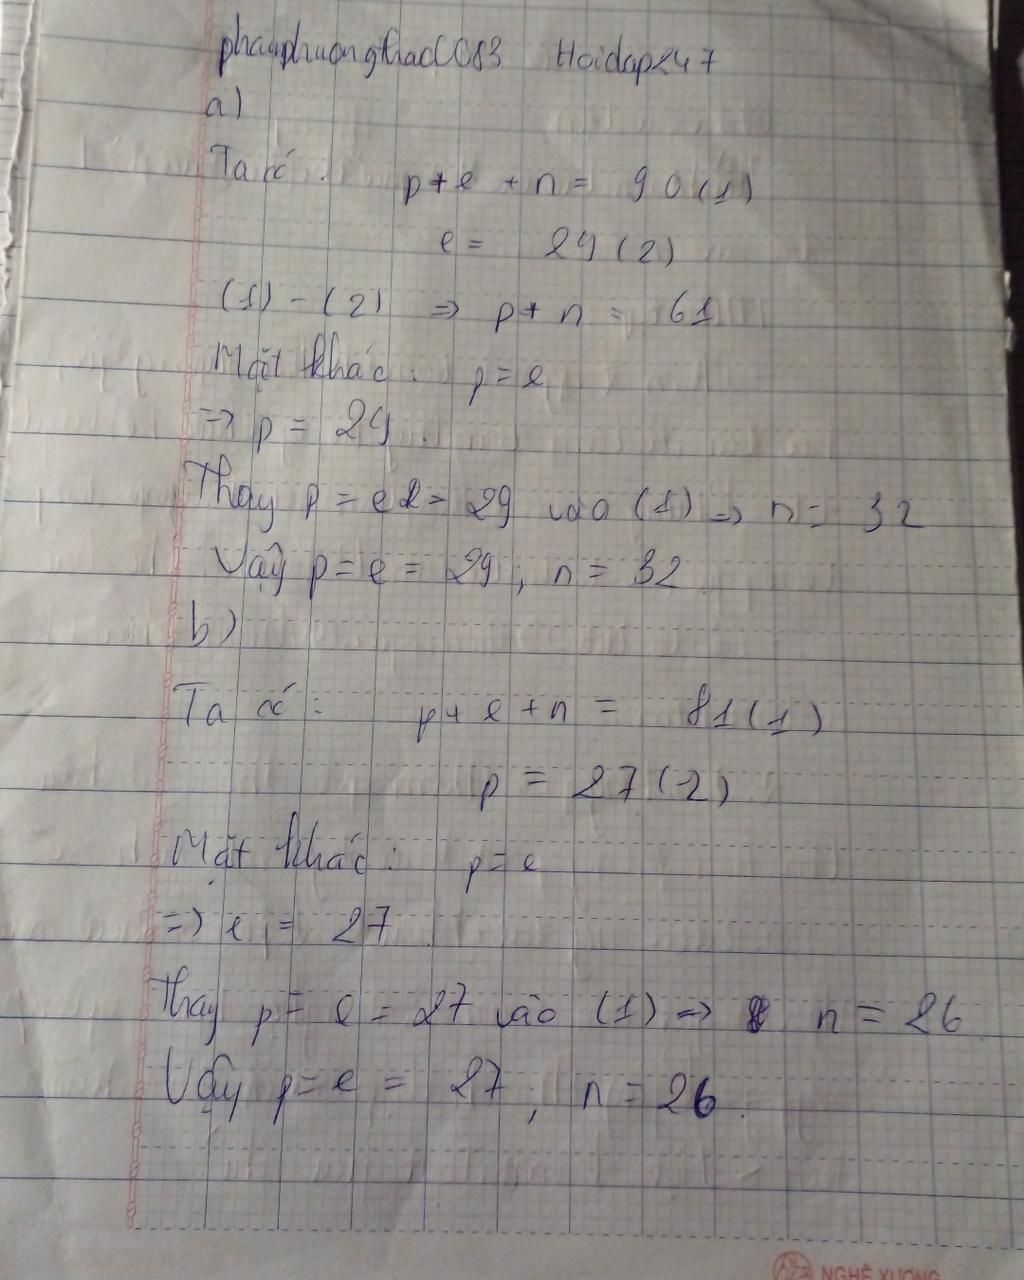 phamphuongthao0083 Hoidap247
a)
Ta có : p+e+n = 90 (1)
e = 29 (2)
(1) - (2) => p + n = 61
Mặt khác : p = e
=> p = 29.
Thay p = e = 29 vào (1) => n = 32
Vậy p = e = 29 , n = 32
b)
Ta có : p + e + n = 81 (1)
p = 27 (2)
Mặt khác : p = e
=> e = 27
Thay p = e = 27 vào (1) => n = 26
Vậy p = e = 27 , n = 26.
NGHÊ XƯƠNG